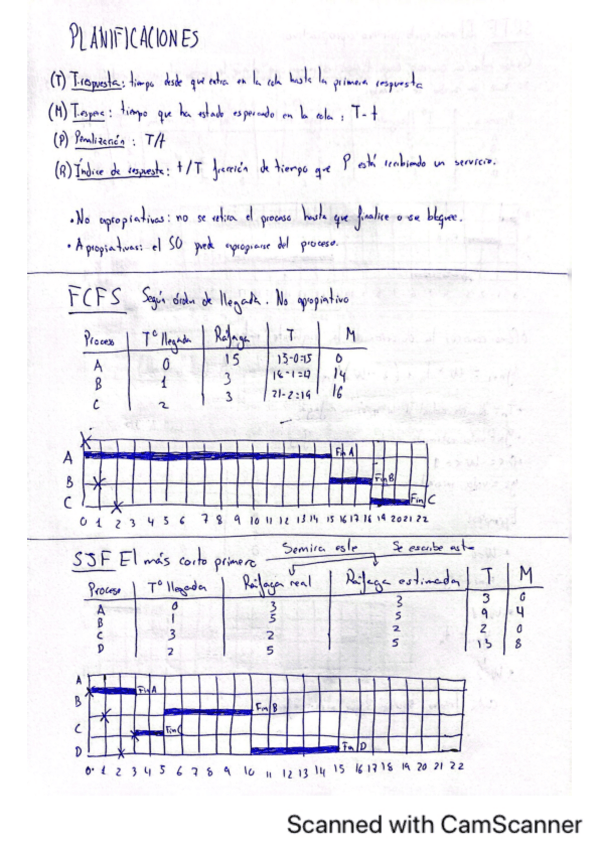 PLANIFICACIONES
(T) T.respuesta: tiempo desde que entra en la cola hasta la primera respuesta
(M) T.espera: tiempo que ha estado esperando en la cola: T-t
(P) Penalización: T/t
(R) Índice de respuesta: t/T fracción de tiempo que P está recibiendo un servicio.
• No apropiativas: no se retira el proceso hasta que finalice o se bloquee.
• Apropiativas: el SO puede apropiarse del proceso.
FCFS Según órden de llegada. No apropiativo
Proceso T° llegada Ráfaga T M
A 0 15 15-0=15 0
B 1 3 18-1=17 14
C 2 3 21-2=19 16
A Fin A
B Fin B
C Fin C
0 1 2 3 4 5 6 7 8 9 10 11 12 13 14 15 16 17 18 19 20 21 22
SJF El más corto primero Se mira este Se escribe este
Proceso T° llegada Ráfaga real Ráfaga estimada T M
A 0 3 3 3 0
B 1 5 5 9 4
C 3 2 2 2 0
D 2 5 5 13 8
A Fin A
B Fin B
C Fin C
D Fin D
0 1 2 3 4 5 6 7 8 9 10 11 12 13 14 15 16 17 18 19 20 21 22
Scanned with CamScanner